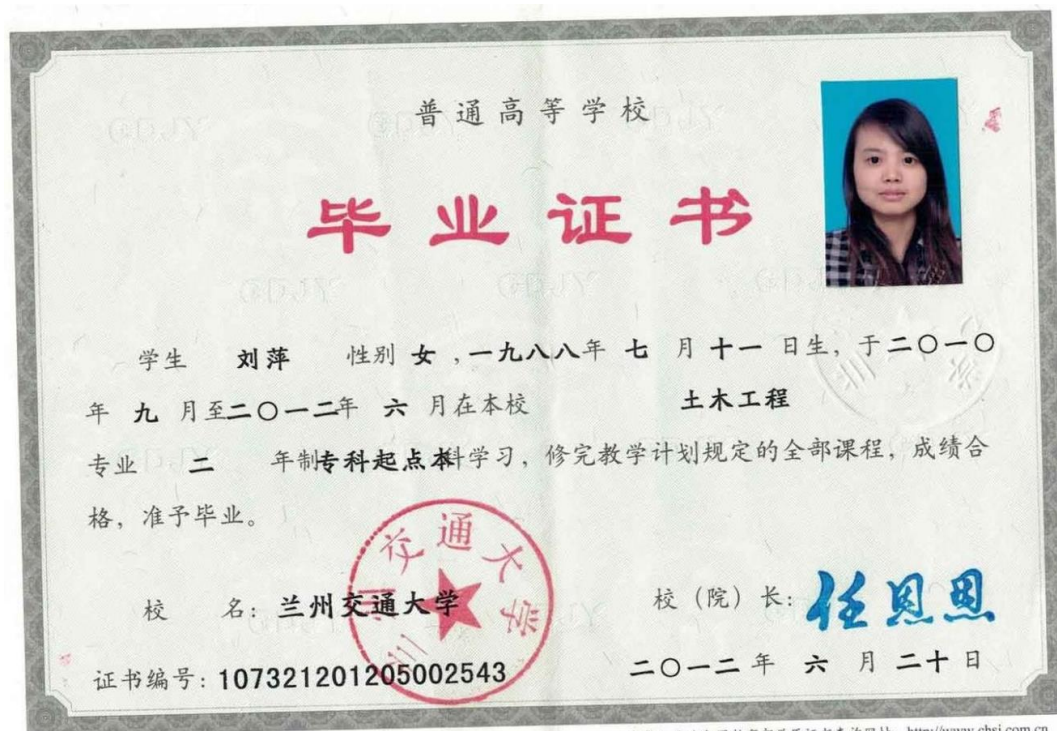 普通高等学校
毕业证书
学生 刘萍 性别 女 ,一九八八年 七 月 十一 日生, 于二〇一〇
年 九 月至二〇一二年 六 月在本校 土木工程
专业 二 年制专科起点本科学习, 修完教学计划规定的全部课程, 成绩合
格, 准予毕业。
兰州交通大学
校 名: 兰州交通大学
校 (院) 长: 任恩恩
证书编号: 107321201205002543
二〇一二 年 六 月 二十 日
http://www.chsi.com.cn